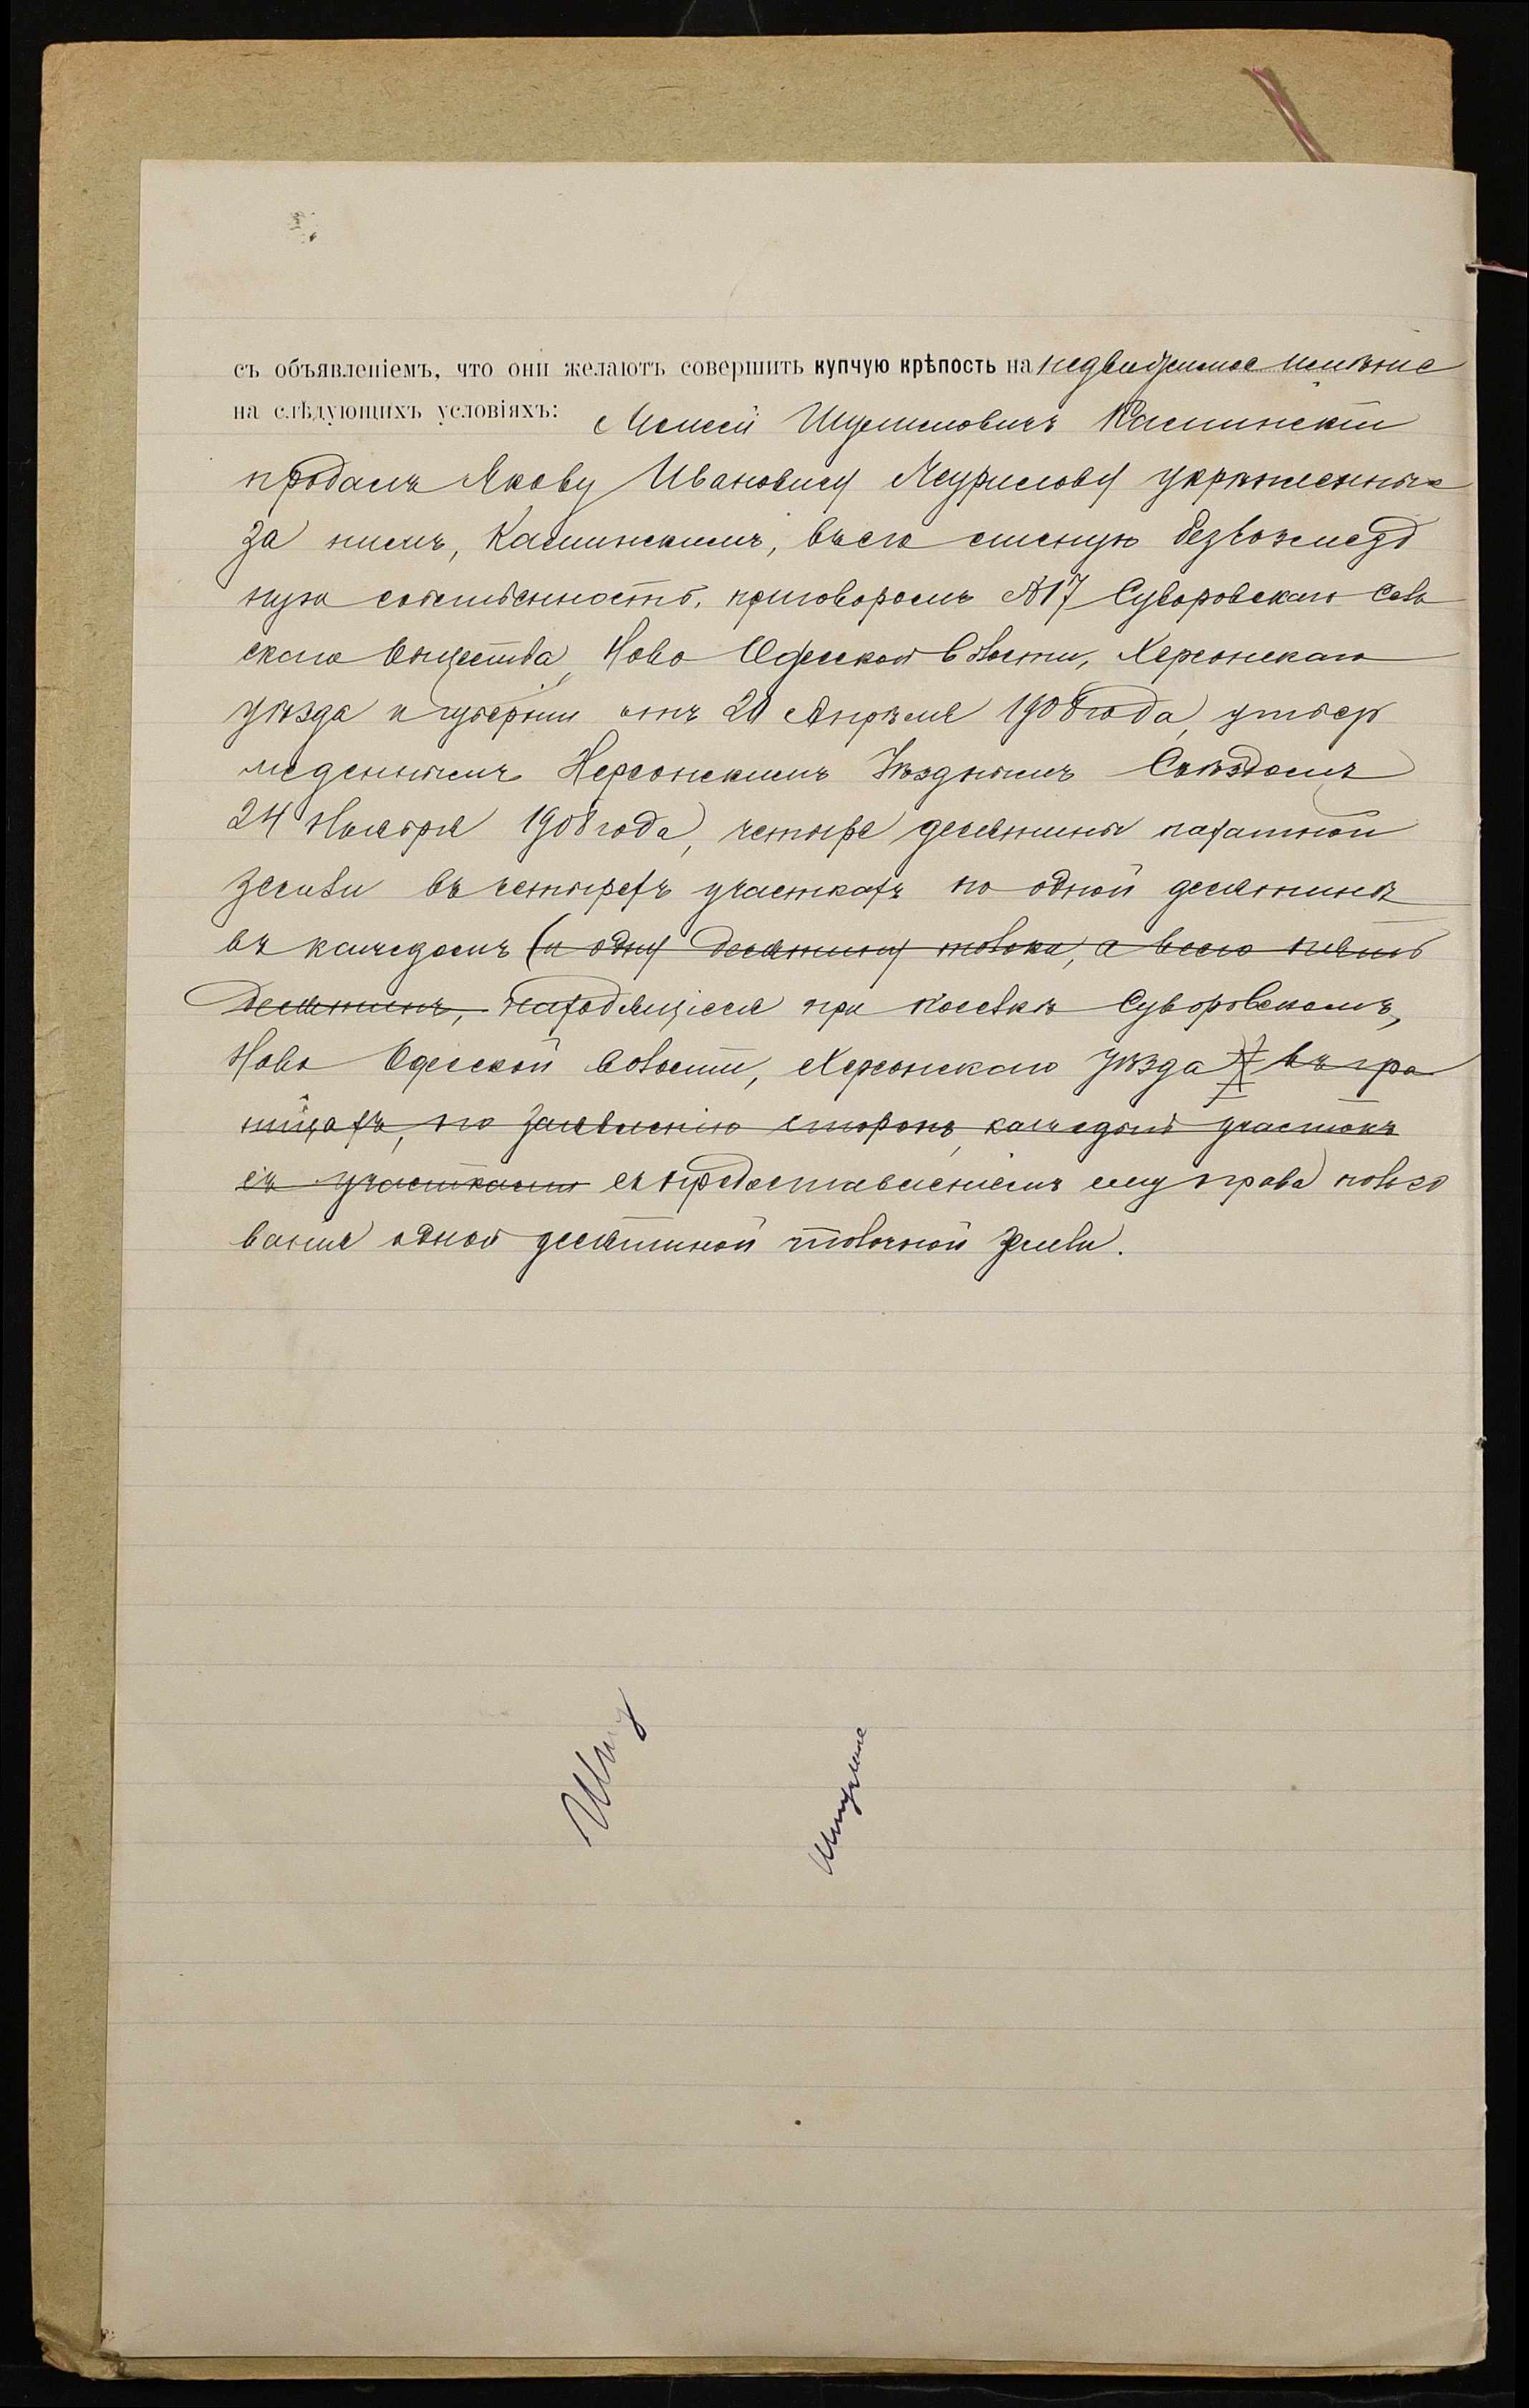 съ объявленіемъ, что они желаютъ совершить купчую крѣпость на недвижимое имѣніе
на слѣдующихъ условіяхъ: Моисей Шулимовичъ Каминскій
продалъ Якову Ивановичу укрѣпленныя
за нимъ, Каминскимъ, въ его личную безвозмезд
ную собственность, приговоромъ №17 Суворовскаго Селъ
скаго Общества, Ново Одесской Волости, Херсонскаго
уѣзда и губерніи отъ 20 Апрѣля 1908 года, утвер
жденнымъ Херсонскимъ Уѣзднымъ Съѣздомъ
24 Ноября 1908 года, четыре десятины пахатной
земли въ четырехъ участкахъ по одной десятинѣ
въ каждомъ (и одну десятину толока, а всего пять
десятинъ, находящіеся при поселкѣ Суворовскомъ,
Ново Одесской волости, Херсонскаго уѣзда въ гра
ницахъ, по заявленію сторонъ, каждый участокъ
съ участками съ предоставленіемъ ему права пользо
ванія одной десятиной толочной земли.